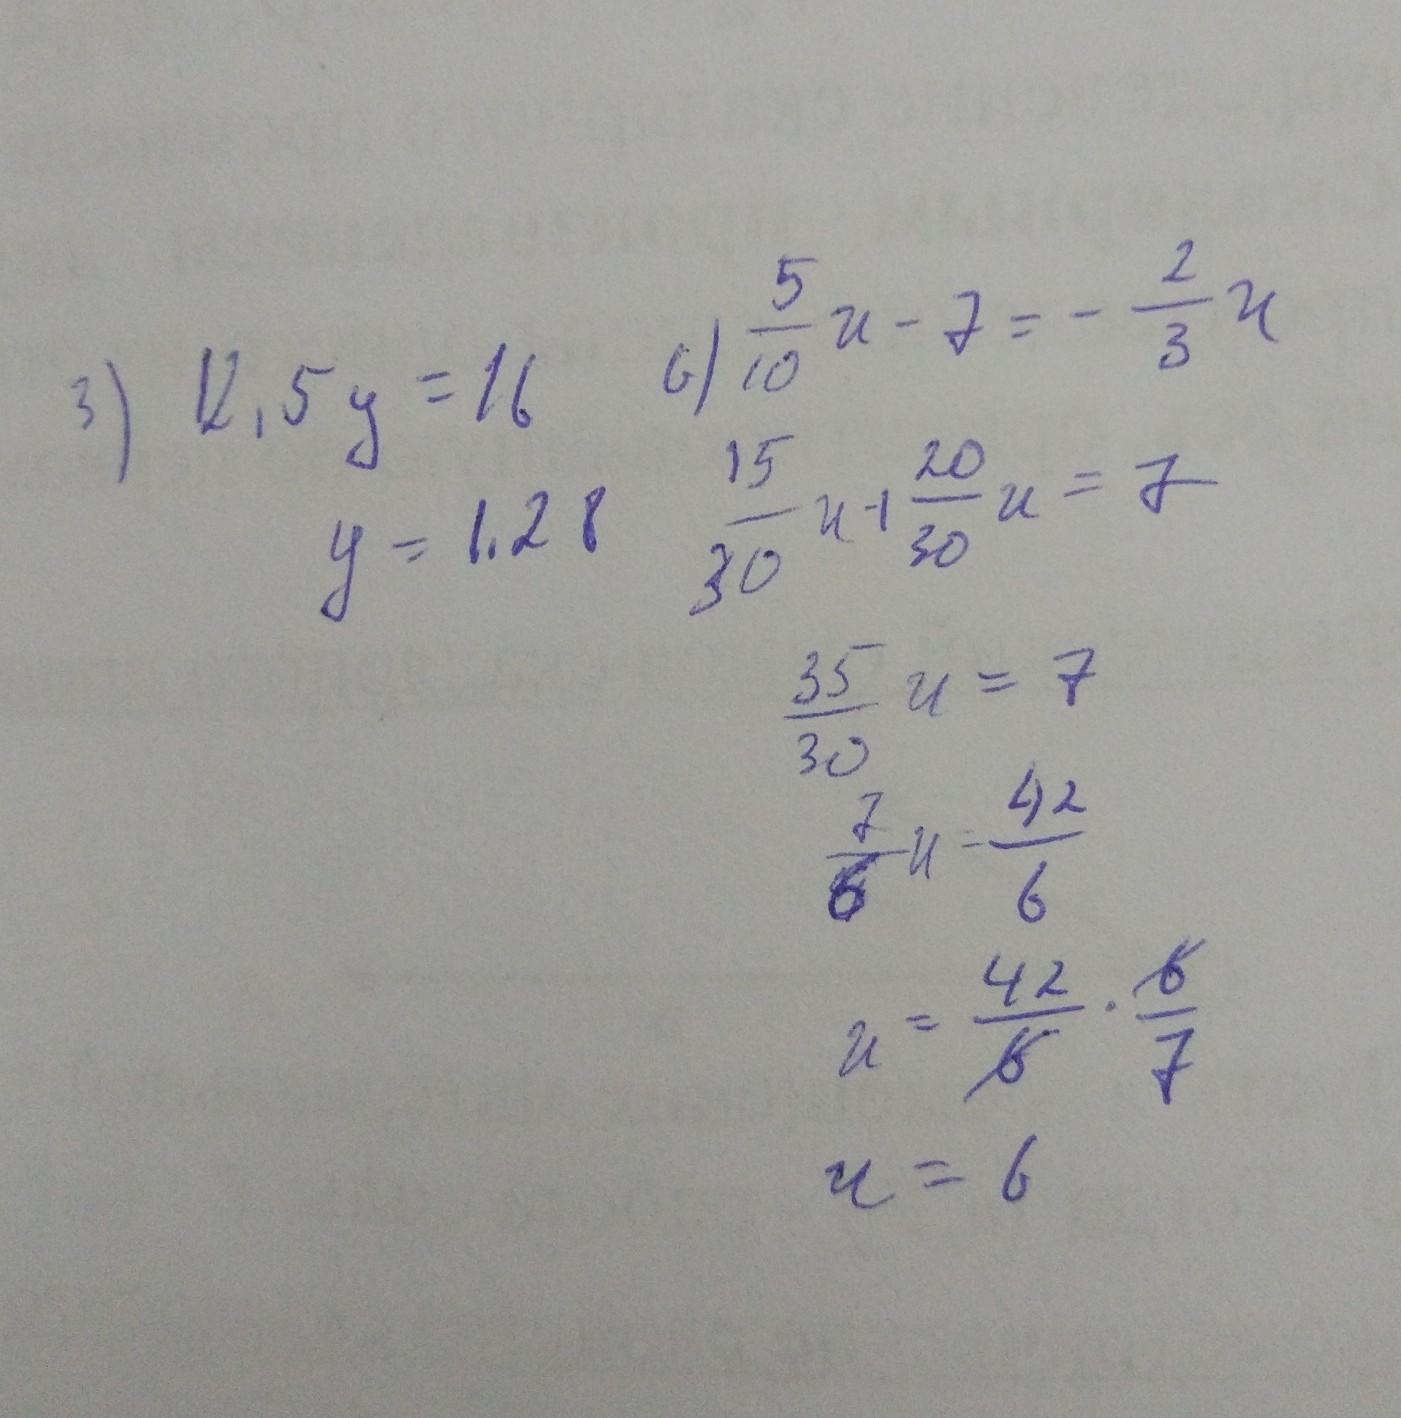 3) 12,5y = 16
y = 1.28
6) 5/10 x - 7 = - 2/3 x
15/30 x + 20/30 x = 7
35/30 x = 7
7/6 x = 42/6
x = 42/6 · 6/7
x = 6